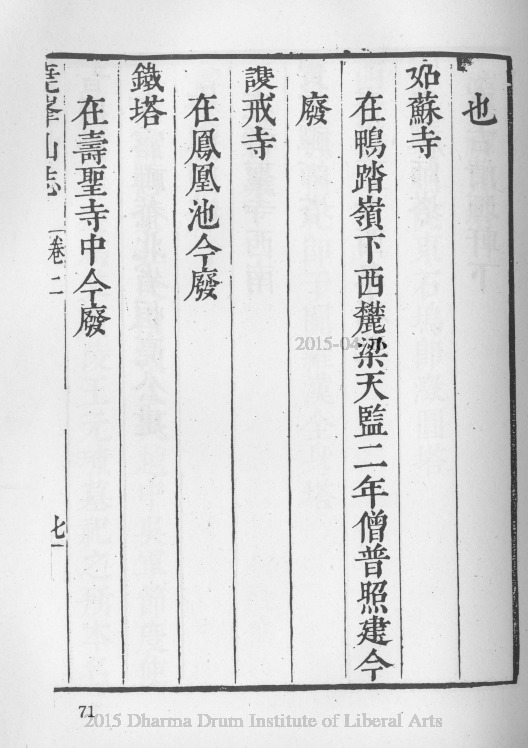 也
如蘇寺
在鴨踏嶺下西麓梁天監二年僧普照建今
廢
護戒寺
在鳳凰池今廢
鐵塔
在壽聖寺中今廢
堯峯山志 卷二 七
71
2015-04
2015 Dharma Drum Institute of Liberal Arts